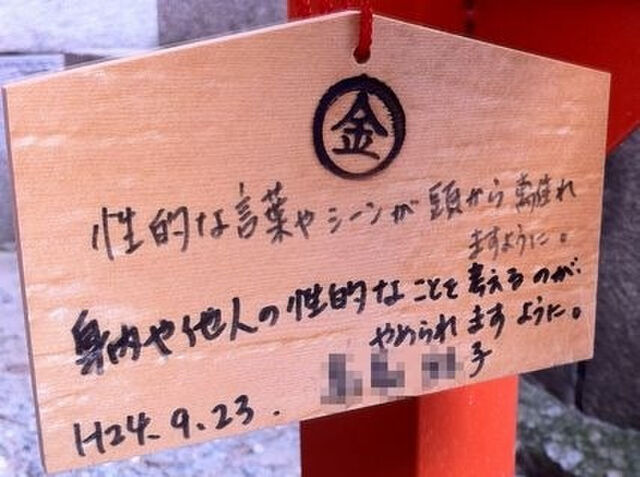 金
性的な言葉やシーンが頭から離れ
ますように。
身内や他人の性的なことを考えるのが
やめられますように。
子
H24.9.23.